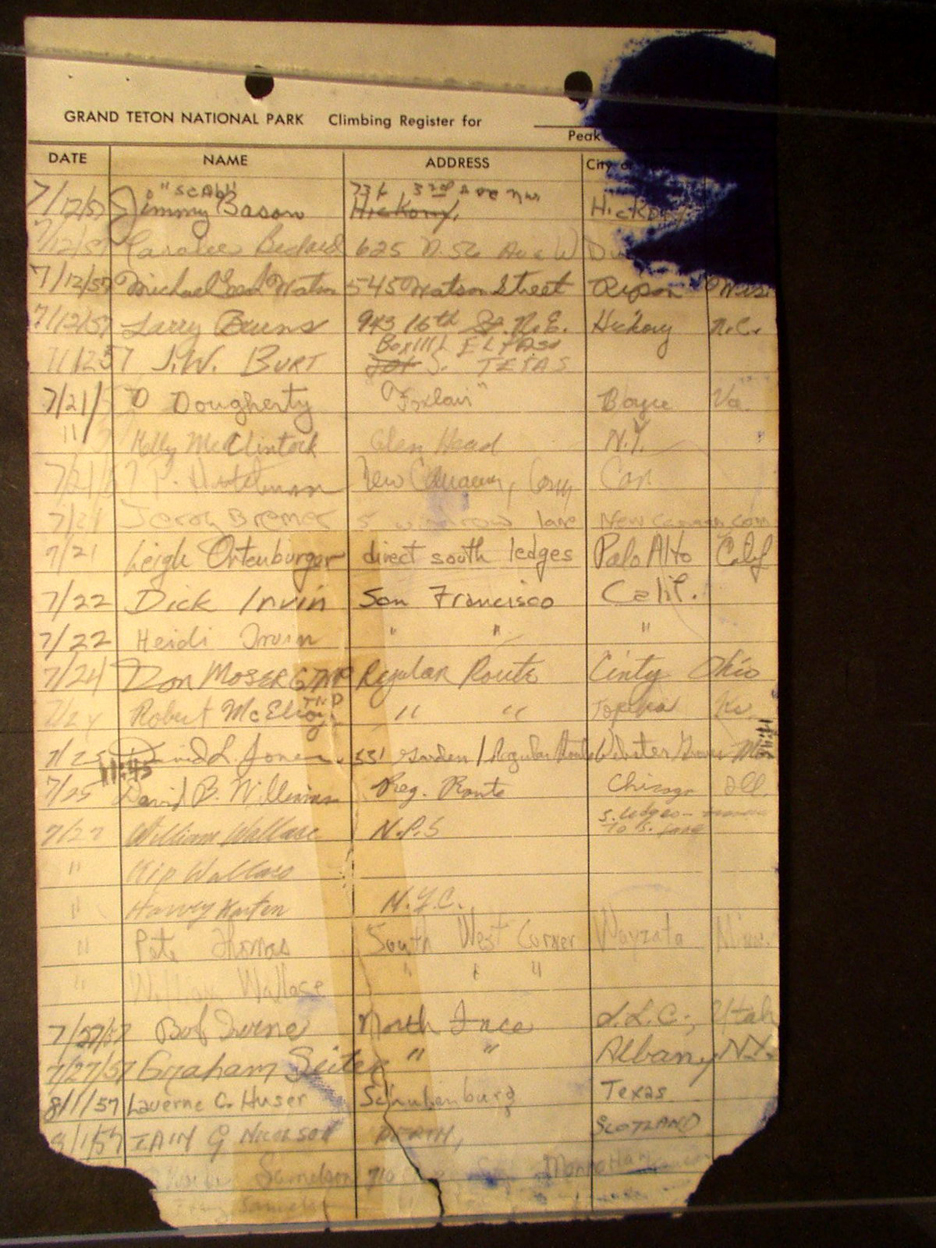 GRAND TETON NATIONAL PARK Climbing Register for
Peak
DATE NAME ADDRESS City
7/12/57 Jimmy "SCAB" Bason 736 3rd Ave NW Hickory, Hickory
7/12/57 625 N. 56 Ave W
7/12/57 Michael Watson 545 Watson Street Ripon Wis.
7/12/57 Larry Burns 943 16th St. N.E. Hickory N.C.
7/12/57 J.W. BURT Box 1111 EL PASO TEXAS
7/21/57 D Dougherty "Foxlair" Boyce Va.
" Holly McClintock Glen Head N.Y.
7/21/57 New Canaan, Conn
7/21 Jerry Bremer 5 lane New Canaan Conn
7/21 Leigh Ortenburger direct south ledges Palo Alto Calif
7/22 Dick Irvin San Francisco Calif.
7/22 Heidi Irvin " " "
7/24 Don MOSER GTNP Regular Route Cinty Ohio
7/24 Robert McElroy " " Topeka Ks.
7/25 David L. Jones 551 Garden / Regular Route Webster Groves Mo
11:45
7/25 David B. Williams Reg. Route Chicago Ill.
7/27 William Wallace N.P.S S. Ledges - to S. fang
" Kip Wallace
" Harvey Karten N.Y.C.
" Pete Thomas South West Corner Wayzata Minn.
" William Wallace " " "
7/27/57 Bob North Face S.L.C., Utah
7/27/57 Graham Seiter " " Albany N.Y.
8/1/57 Laverne C. Huser Schulenburg Texas
8/1/57 IAIN G NICOLSON PERTH, SCOTLAND
Samelson 710 Manhattan